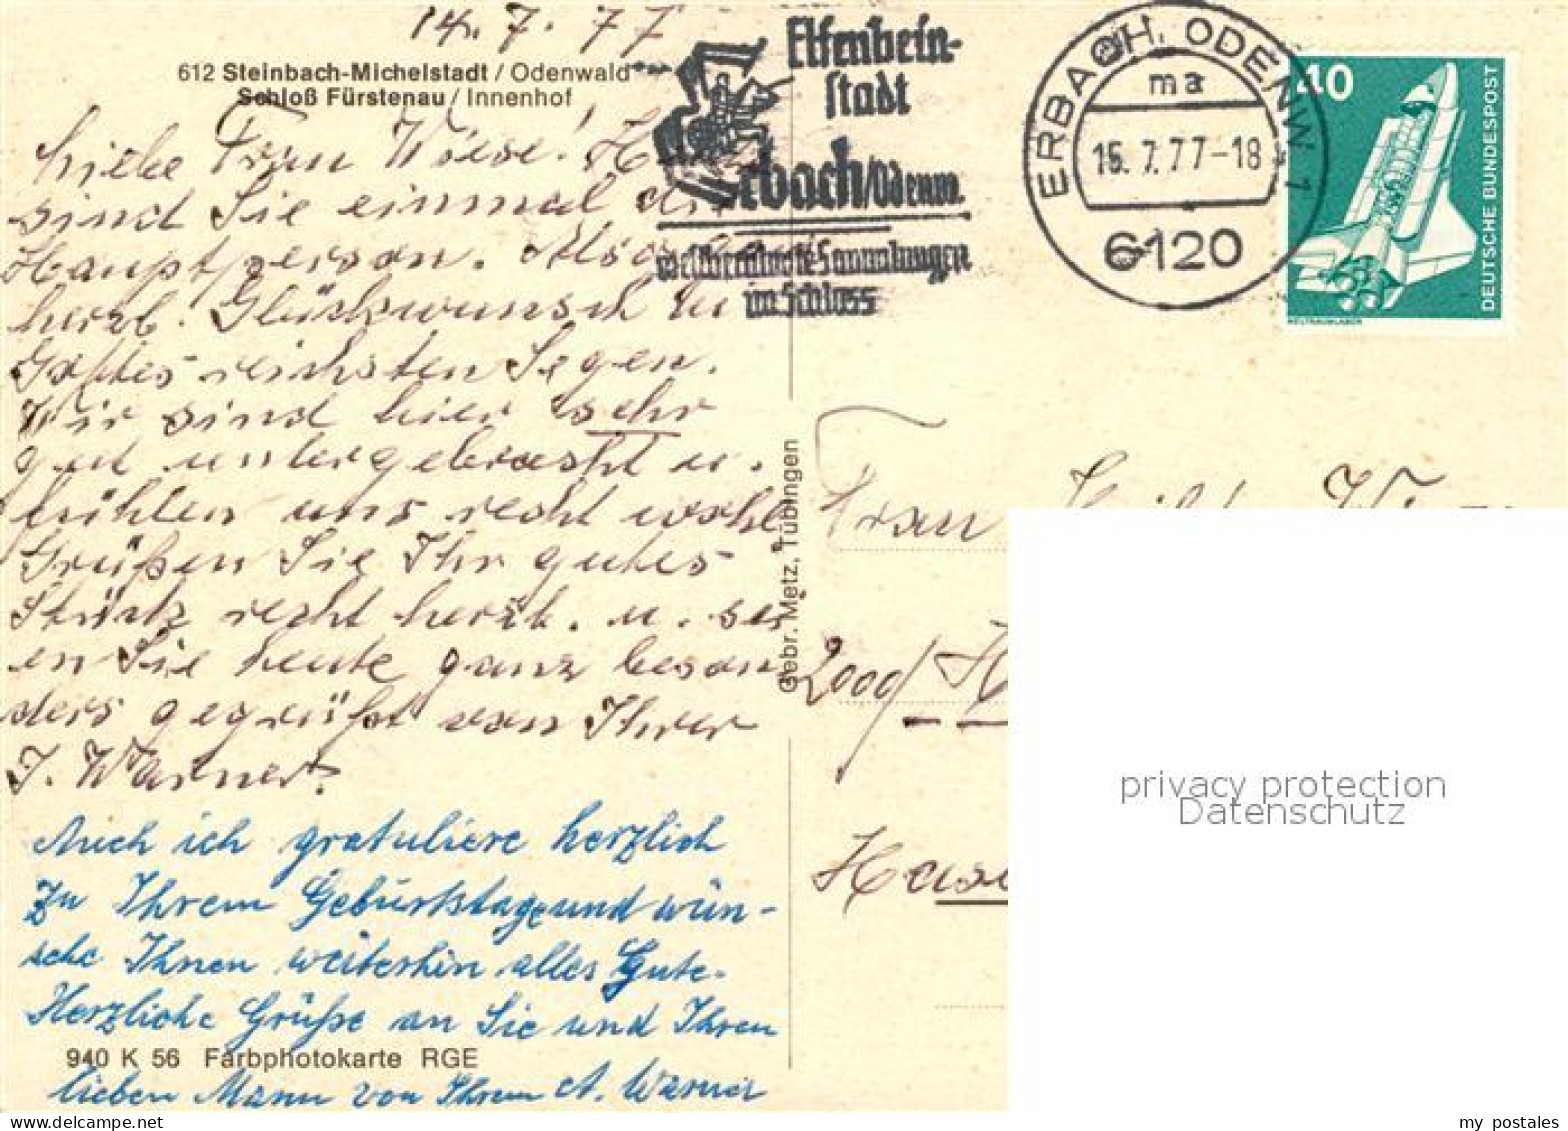 14. 7. 77
612 Steinbach-Michelstadt / Odenwald
Schloß Fürstenau / Innenhof
Liebe Frau Wiese! Heute
sind Sie einmal die
Hauptperson. Also
herzl. Glückwunsch u
Gottes reichsten Segen.
Wir sind hier sehr
gut untergebracht u.
fühlen uns recht wohl
Grüßen Sie Ihr gutes
Stück recht herzl. u. sei
en Sie heute ganz beson
ders gegrüßt von Ihrer
J. Warner.
Auch ich gratuliere herzlich
zu Ihrem Geburtstage und wün-
sche Ihnen weiterhin alles Gute.
Herzliche Grüße an Sie und Ihren
lieben Mann von Ihrem A. Warner
940 K 56 Farbphotokarte RGE
Gebr. Metz, Tübingen
Elfenbein-
stadt
Erbach/Odenw.
weltberühmte Sammlungen
im Schloss
ERBACH, ODENW 1
ma
15. 7. 77-18
6120
40
DEUTSCHE BUNDESPOST
WELTRAUMLABOR
Frau
2000/ H
Hase
privacy protection
Datenschutz
my postales